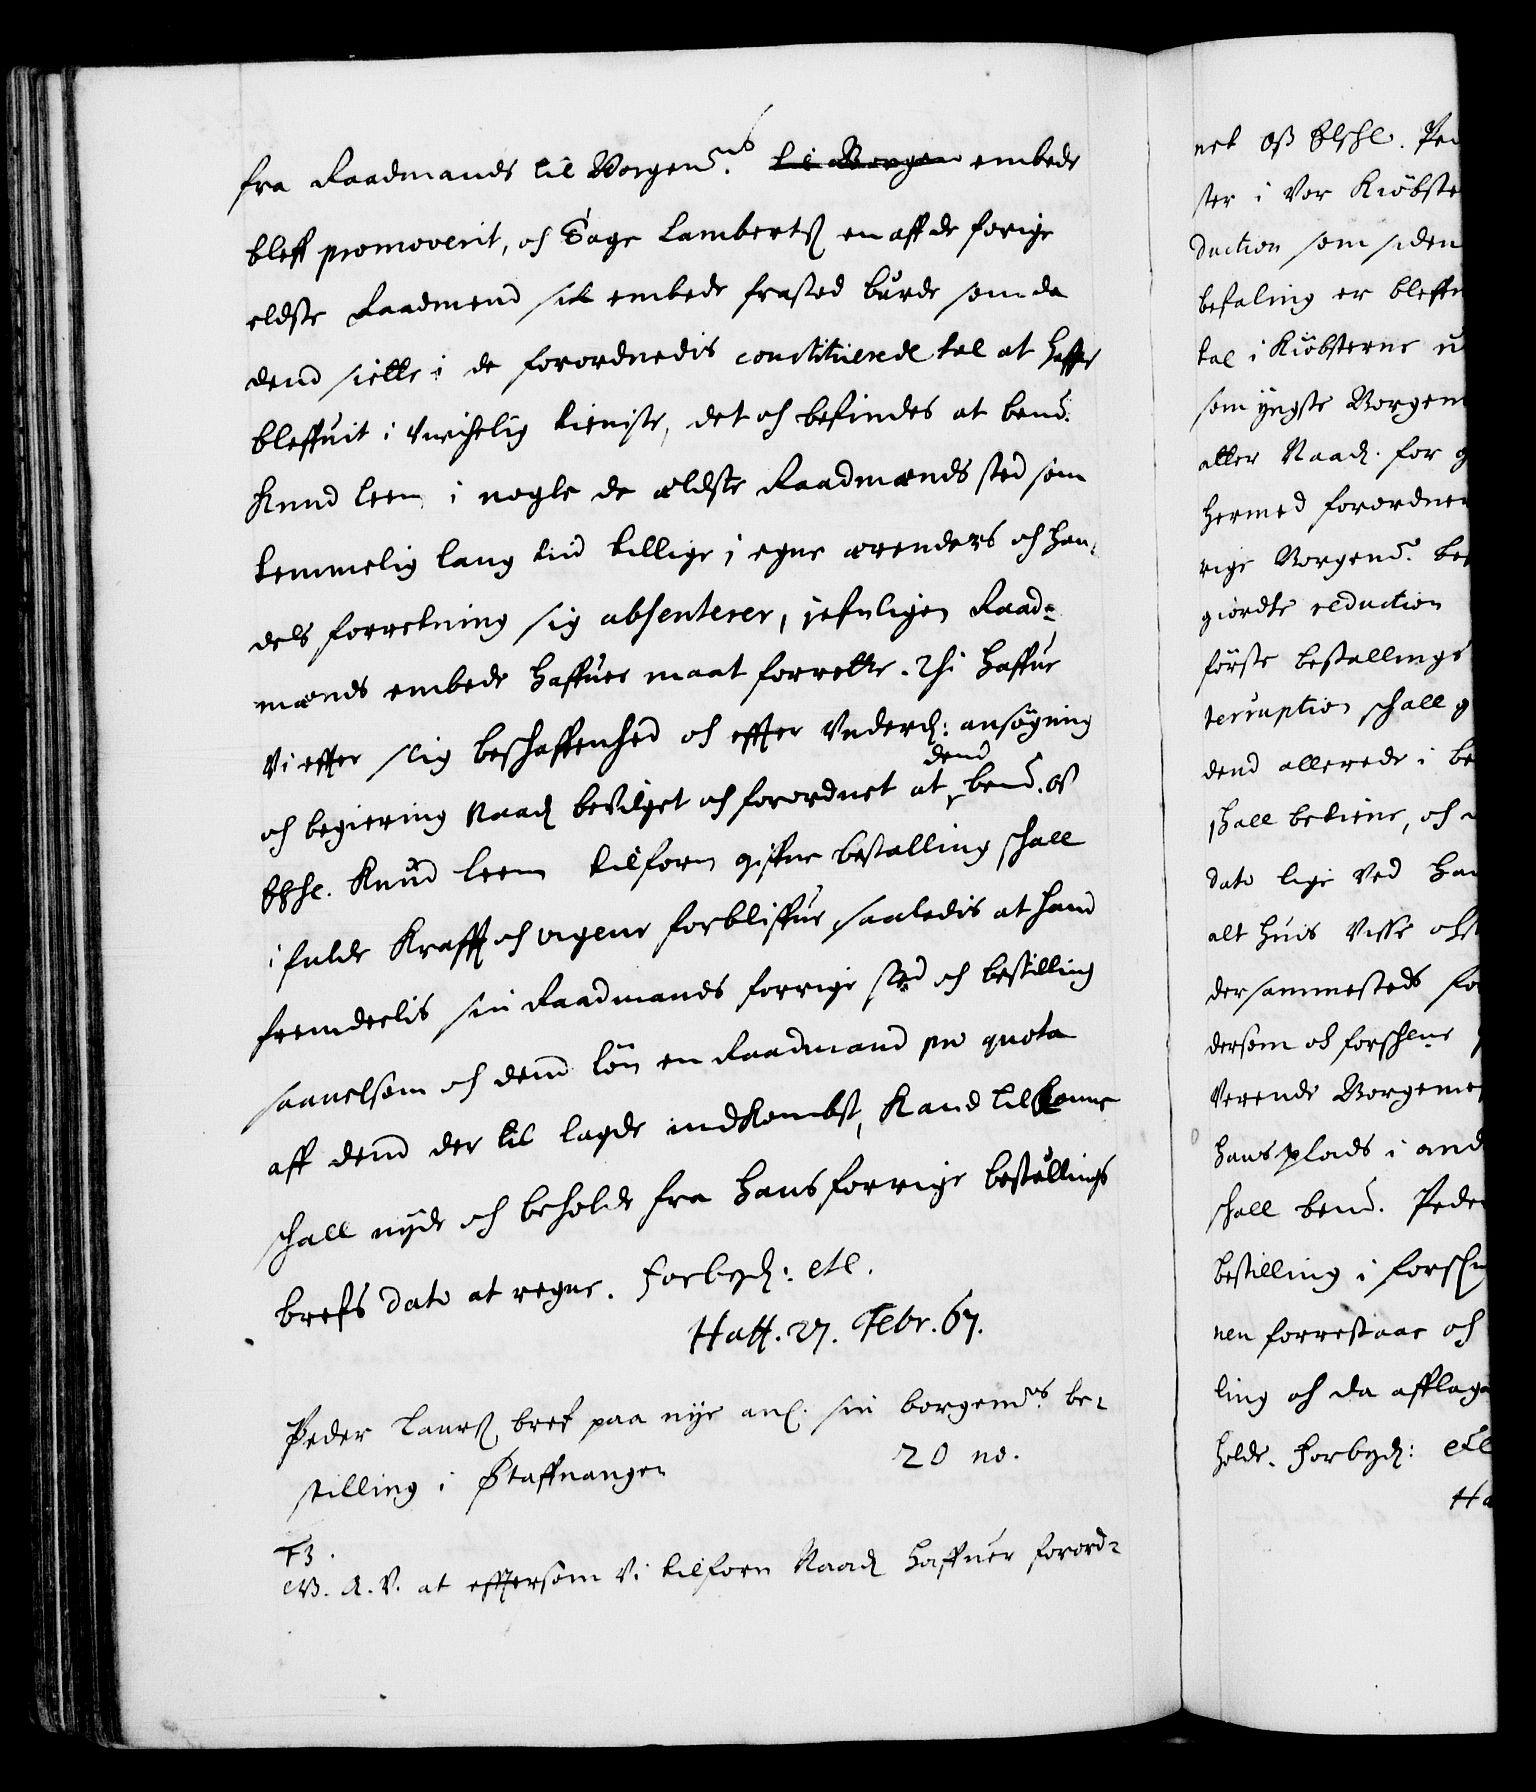 fra Raadmands til Borgem.rs ~~til Borgem~~ embede
bleff promoverit, och Tage Lambertß en aff de forige
eldste Raadmend sit embede frasted burde som da
dend siette i de forordnedis constituerede tal at haffe
bleffuit i virchelig tieniste, det och befindes at bemd.
Knud Leem i nogle de ældste Raadmænds sted som
temmelig lang tid tillige i egne ærenders och han-
dels forretning sig absenterer, jefnligen Raad-
mænds embede haffuer maat forrette. Thi haffue
Vi effter slig beschaffenhed och effter Underd: ansøgning
och begiering Naad bevilget och forordnet at dend bemd. os
Elschl. Knud Leem tilforn gifne bestalling schall
i fulde Krafft och vigeur forbliffue saaledis at hand
fremdeelis sin Raadmands forrige sted och bestilling
saauelsom och dend løn en Raadmand pro quota
aff dend der til lagde indkombst, Kand tilkomme
schall nyde och beholde fra hans forrige bestallings
brefs dato at regne. Forbyd: etc.
Haff. 27. Febr. 67.
Peder Laurß bref paa nye anl. sin borgem.rs be-
stilling i Staffuanger
20 no.
F3.
G. A. V. at efftersom Vi tilforn Naad haffuer forord-
net Oß Elschl. Ped
ster i Vor Kiöbste
duction som siden
befaling er bleffu
tal i Kiöbsterne u
som yngste Borgem
aller Naad. for g
hermed forordner
rige Borgemd. be
giordte reduction
første bestallings
terruption schall
dend allerede i be
shall betiene, och
dato lige ved han
alt huis Visse och
dersammesteds fo
dersom och forschl.ne
Verende Borgemes
hans plads i and
schall bemd. Peder
bestilling i forsch
nen forrestaar och
ling och da afflag
holde. Forbyd: etc
Ha